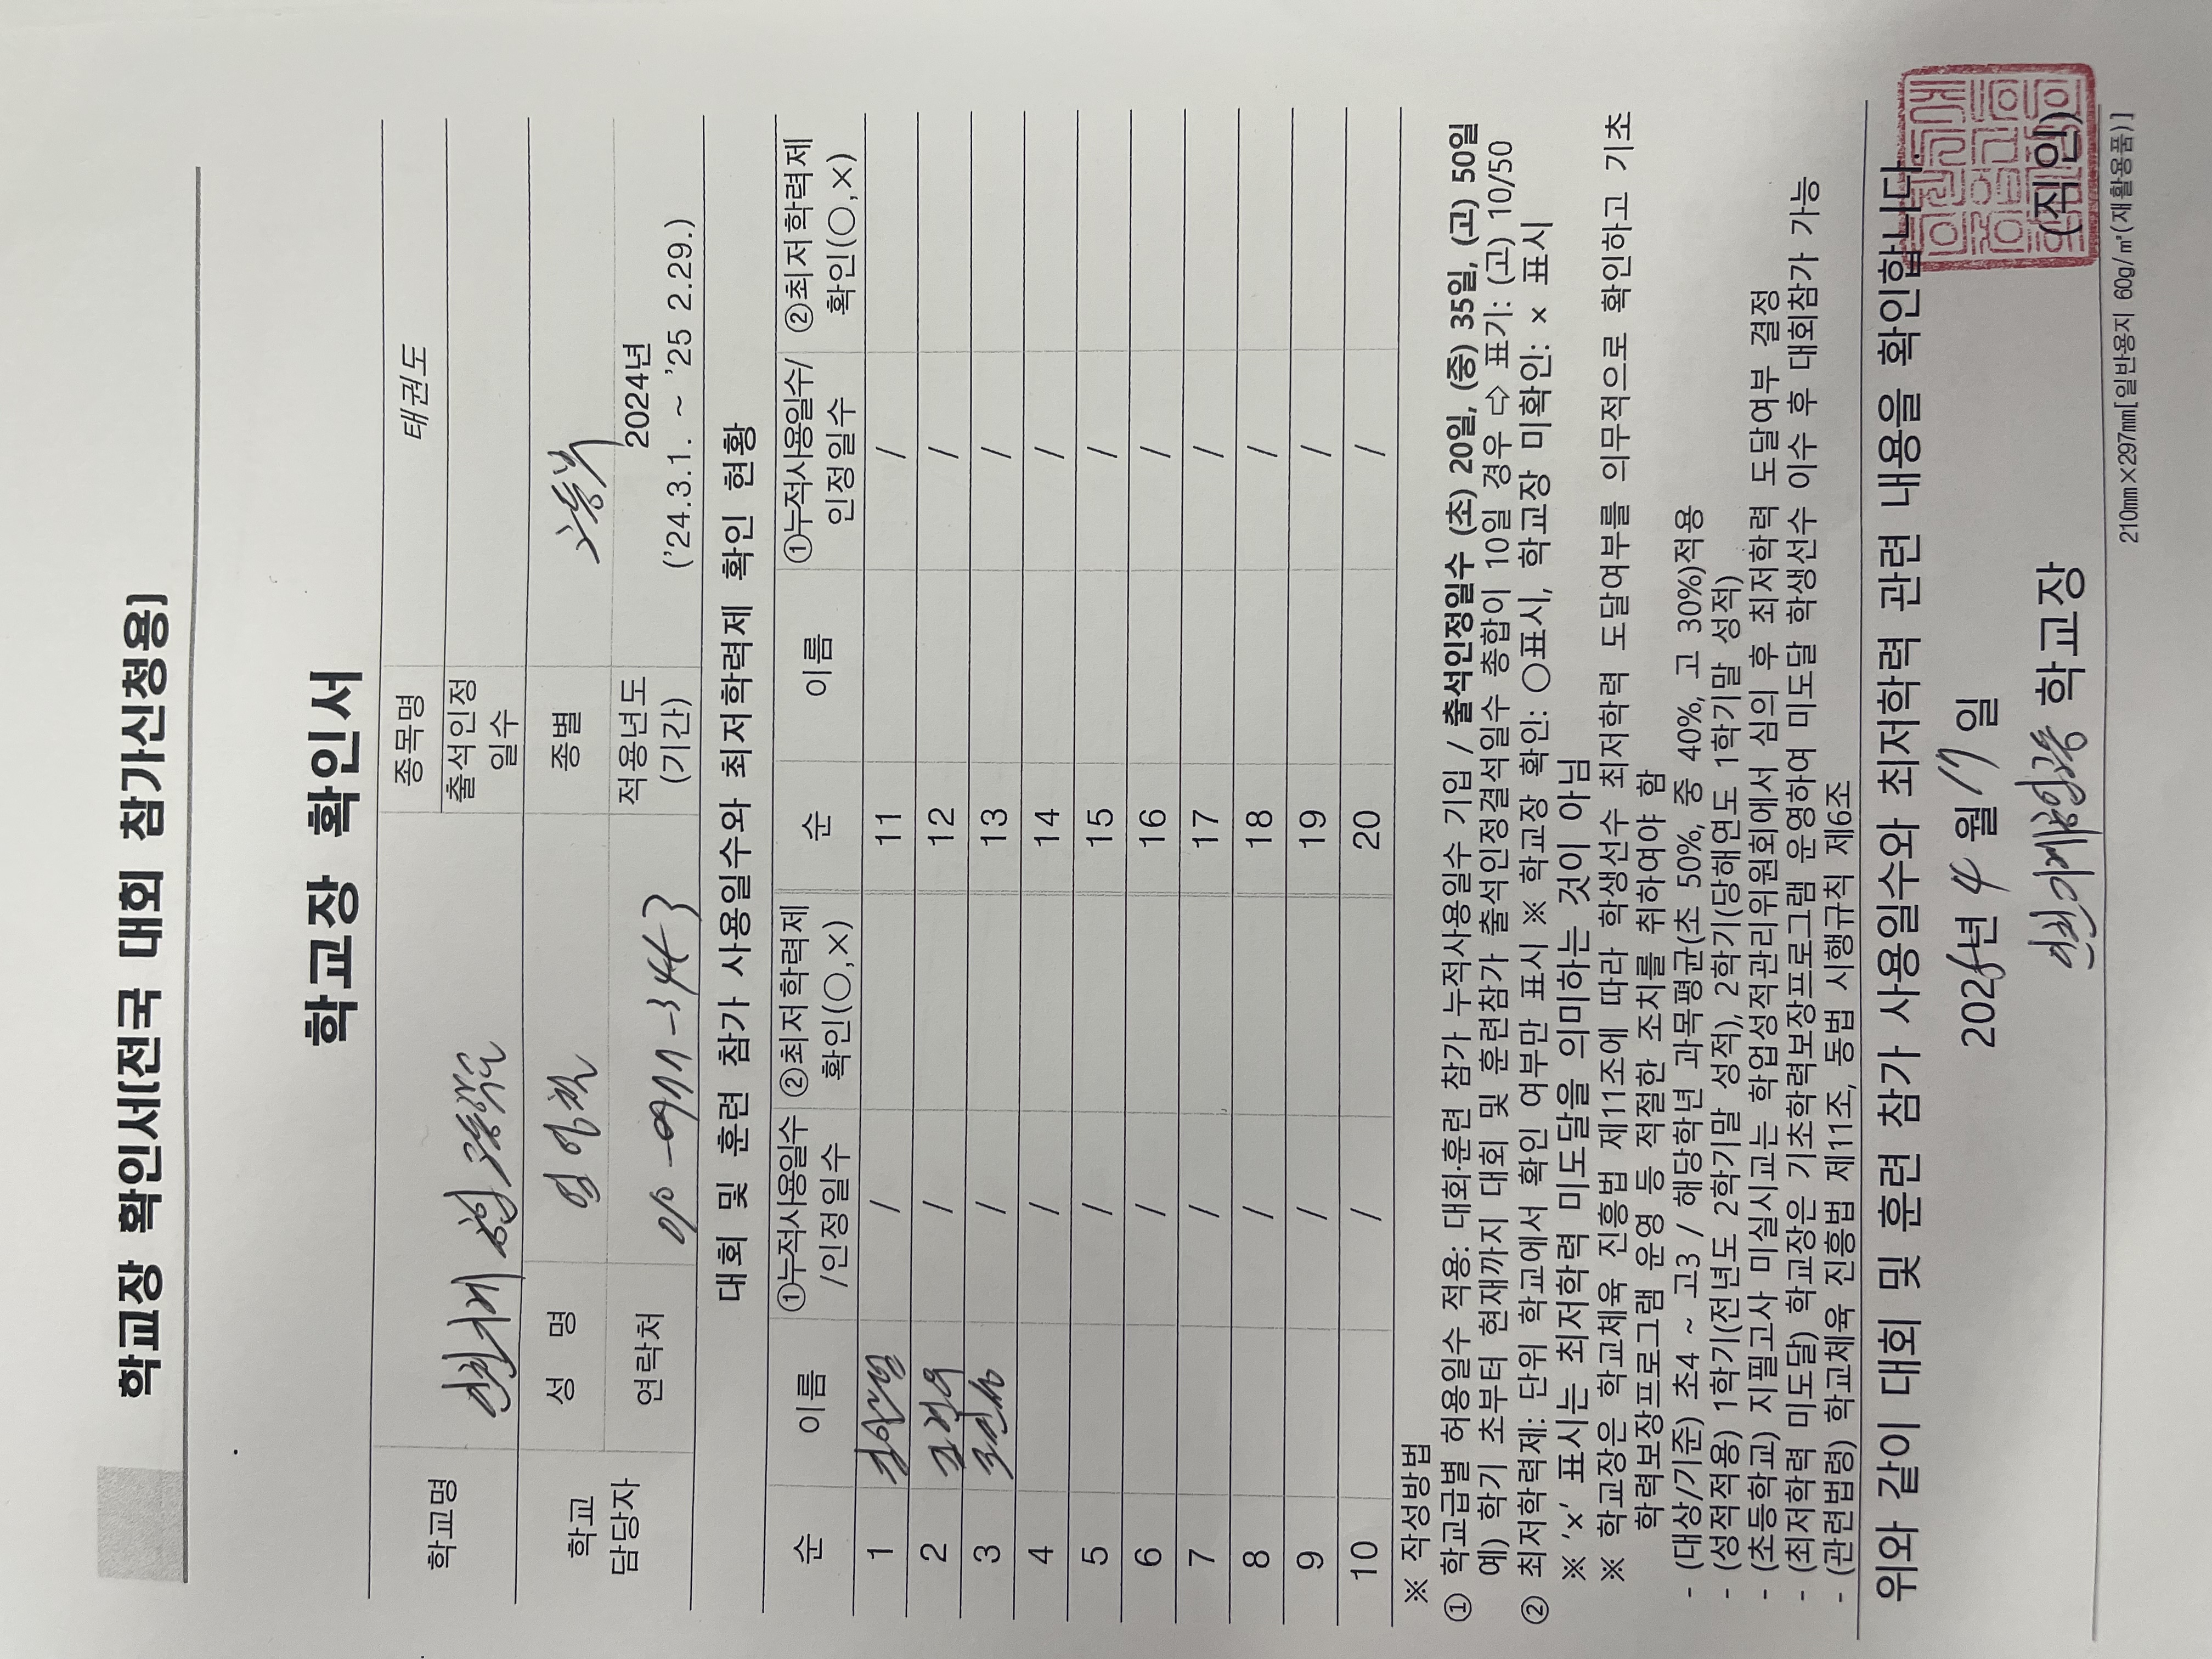 학교장 확인서[전국 대회 참가신청용]
학교장 확인서
학교명
종목명 태권도
출석인정
일수
학교
담당자
성 명
종별
연락처
적용년도
(기간)
2024년
('24.3.1. ~ '25 2.29.)
대회 및 훈련 참가 사용일수와 최저학력제 확인 현황
순 이름 ①누적사용일수 /인정일수 ②최저학력제 확인(○,×) 순 이름 ①누적사용일수/ 인정일수 ②최저학력제 확인(○,×)
1 / 11 /
2 / 12 /
3 / 13 /
4 / 14 /
5 / 15 /
6 / 16 /
7 / 17 /
8 / 18 /
9 / 19 /
10 / 20 /
※ 작성방법
① 학교급별 허용일수 적용: 대회·훈련 참가 누적사용일수 기입 / 출석인정일수 (초) 20일, (중) 35일, (고) 50일
예) 학기 초부터 현재까지 대회 및 훈련참가 출석인정결석일수 총합이 10일 경우 ⇨ 표기: (고) 10/50
② 최저학력제: 단위 학교에서 확인 여부만 표시 ※ 학교장 확인: ○표시, 학교장 미확인: × 표시
※ '×' 표시는 최저학력 미도달을 의미하는 것이 아님
※ 학교장은 학교체육 진흥법 제11조에 따라 학생선수 최저학력 도달여부를 의무적으로 확인하고 기초
학력보장프로그램 운영 등 적절한 조치를 취하여야 함
- (대상/기준) 초4 ~ 고3 / 해당학년 과목평균(초 50%, 중 40%, 고 30%)적용
- (성적적용) 1학기(전년도 2학기말 성적), 2학기(당해연도 1학기말 성적)
- (초등학교) 지필고사 미실시교는 학업성적관리위원회에서 심의 후 최저학력 도달여부 결정
- (최저학력 미도달) 학교장은 기초학력보장프로그램 운영하여 미도달 학생선수 이수 후 대회참가 가능
- (관련법령) 학교체육 진흥법 제11조, 동법 시행규칙 제6조
위와 같이 대회 및 훈련 참가 사용일수와 최저학력 관련 내용을 확인합니다.
년 4 월 17 일
학교장 (직인)
210㎜×297㎜[일반용지 60g/㎡(재활용품)]